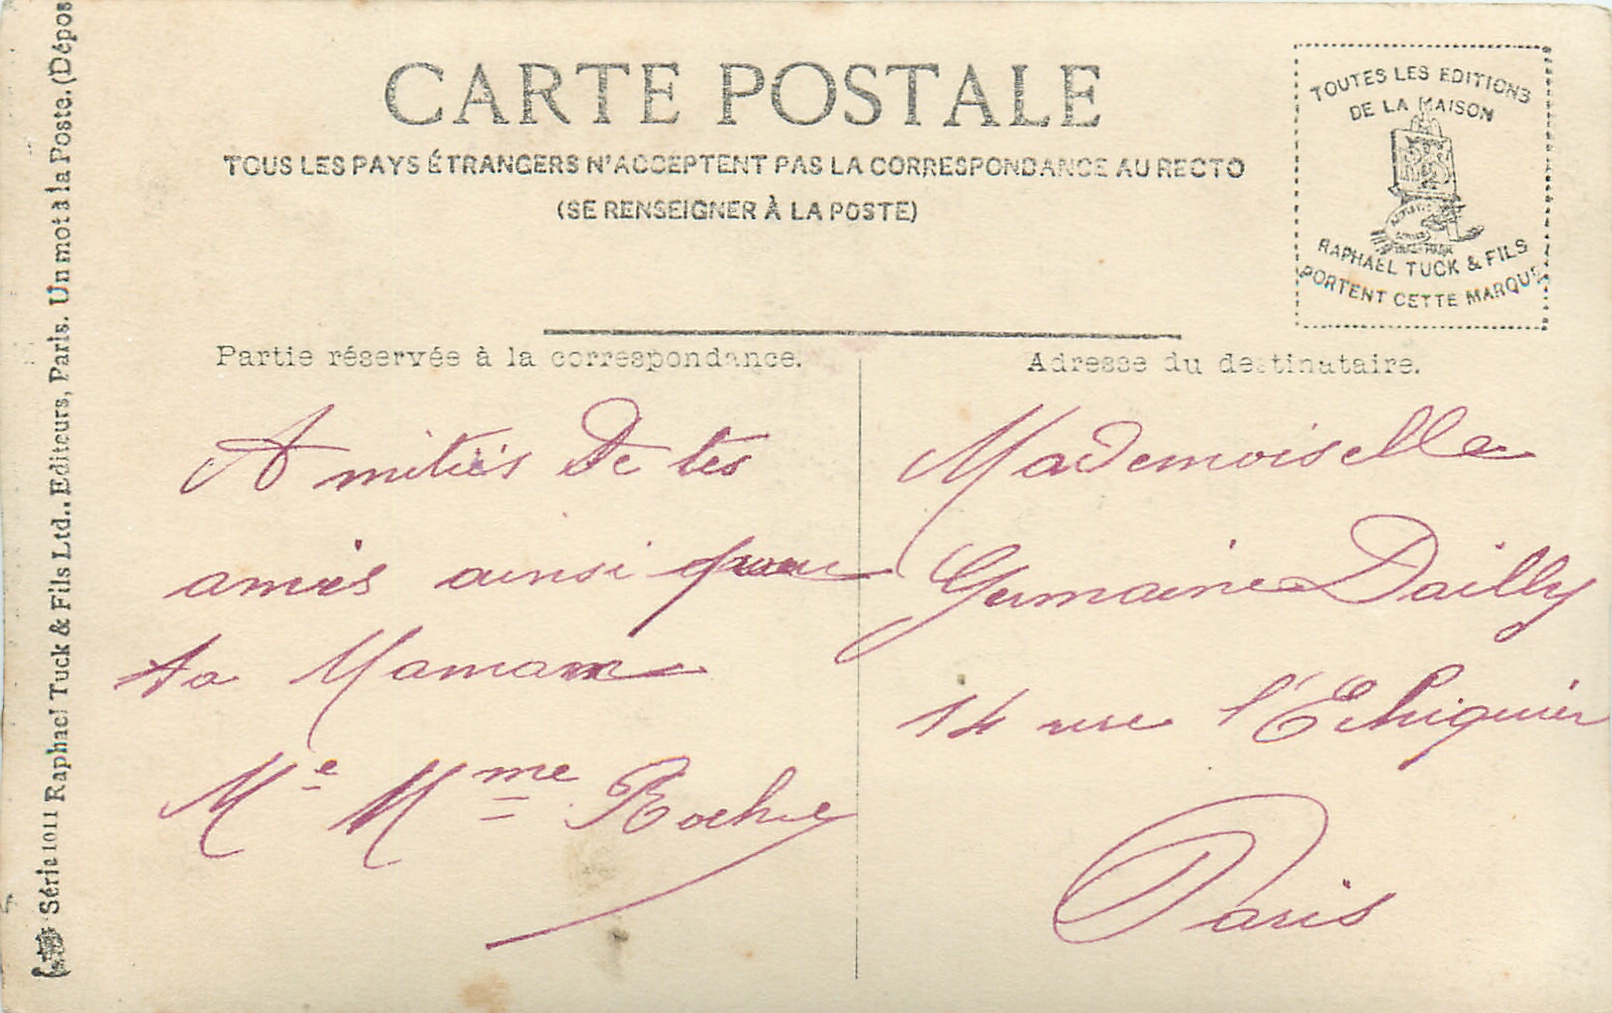 CARTE POSTALE
TOUS LES PAYS ÉTRANGERS N'ACCEPTENT PAS LA CORRESPONDANCE AU RECTO
(SE RENSEIGNER À LA POSTE)
TOUTES LES EDITIONS
DE LA MAISON
RAPHAEL TUCK & FILS
PORTENT CETTE MARQUE
Partie réservée à la correspondance.
Amitiés de tes
amis ainsi que
ta Maman
Me Mme Roche
Adresse du destinataire.
Mademoiselle
Germaine Dailly
14 rue l'Echiquier
Paris
Série 1011 Raphael Tuck & Fils Ltd., Editeurs, Paris. Un mot à la Poste. (Dépos